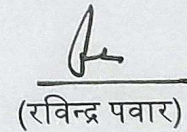 (रविन्द्र पवार)